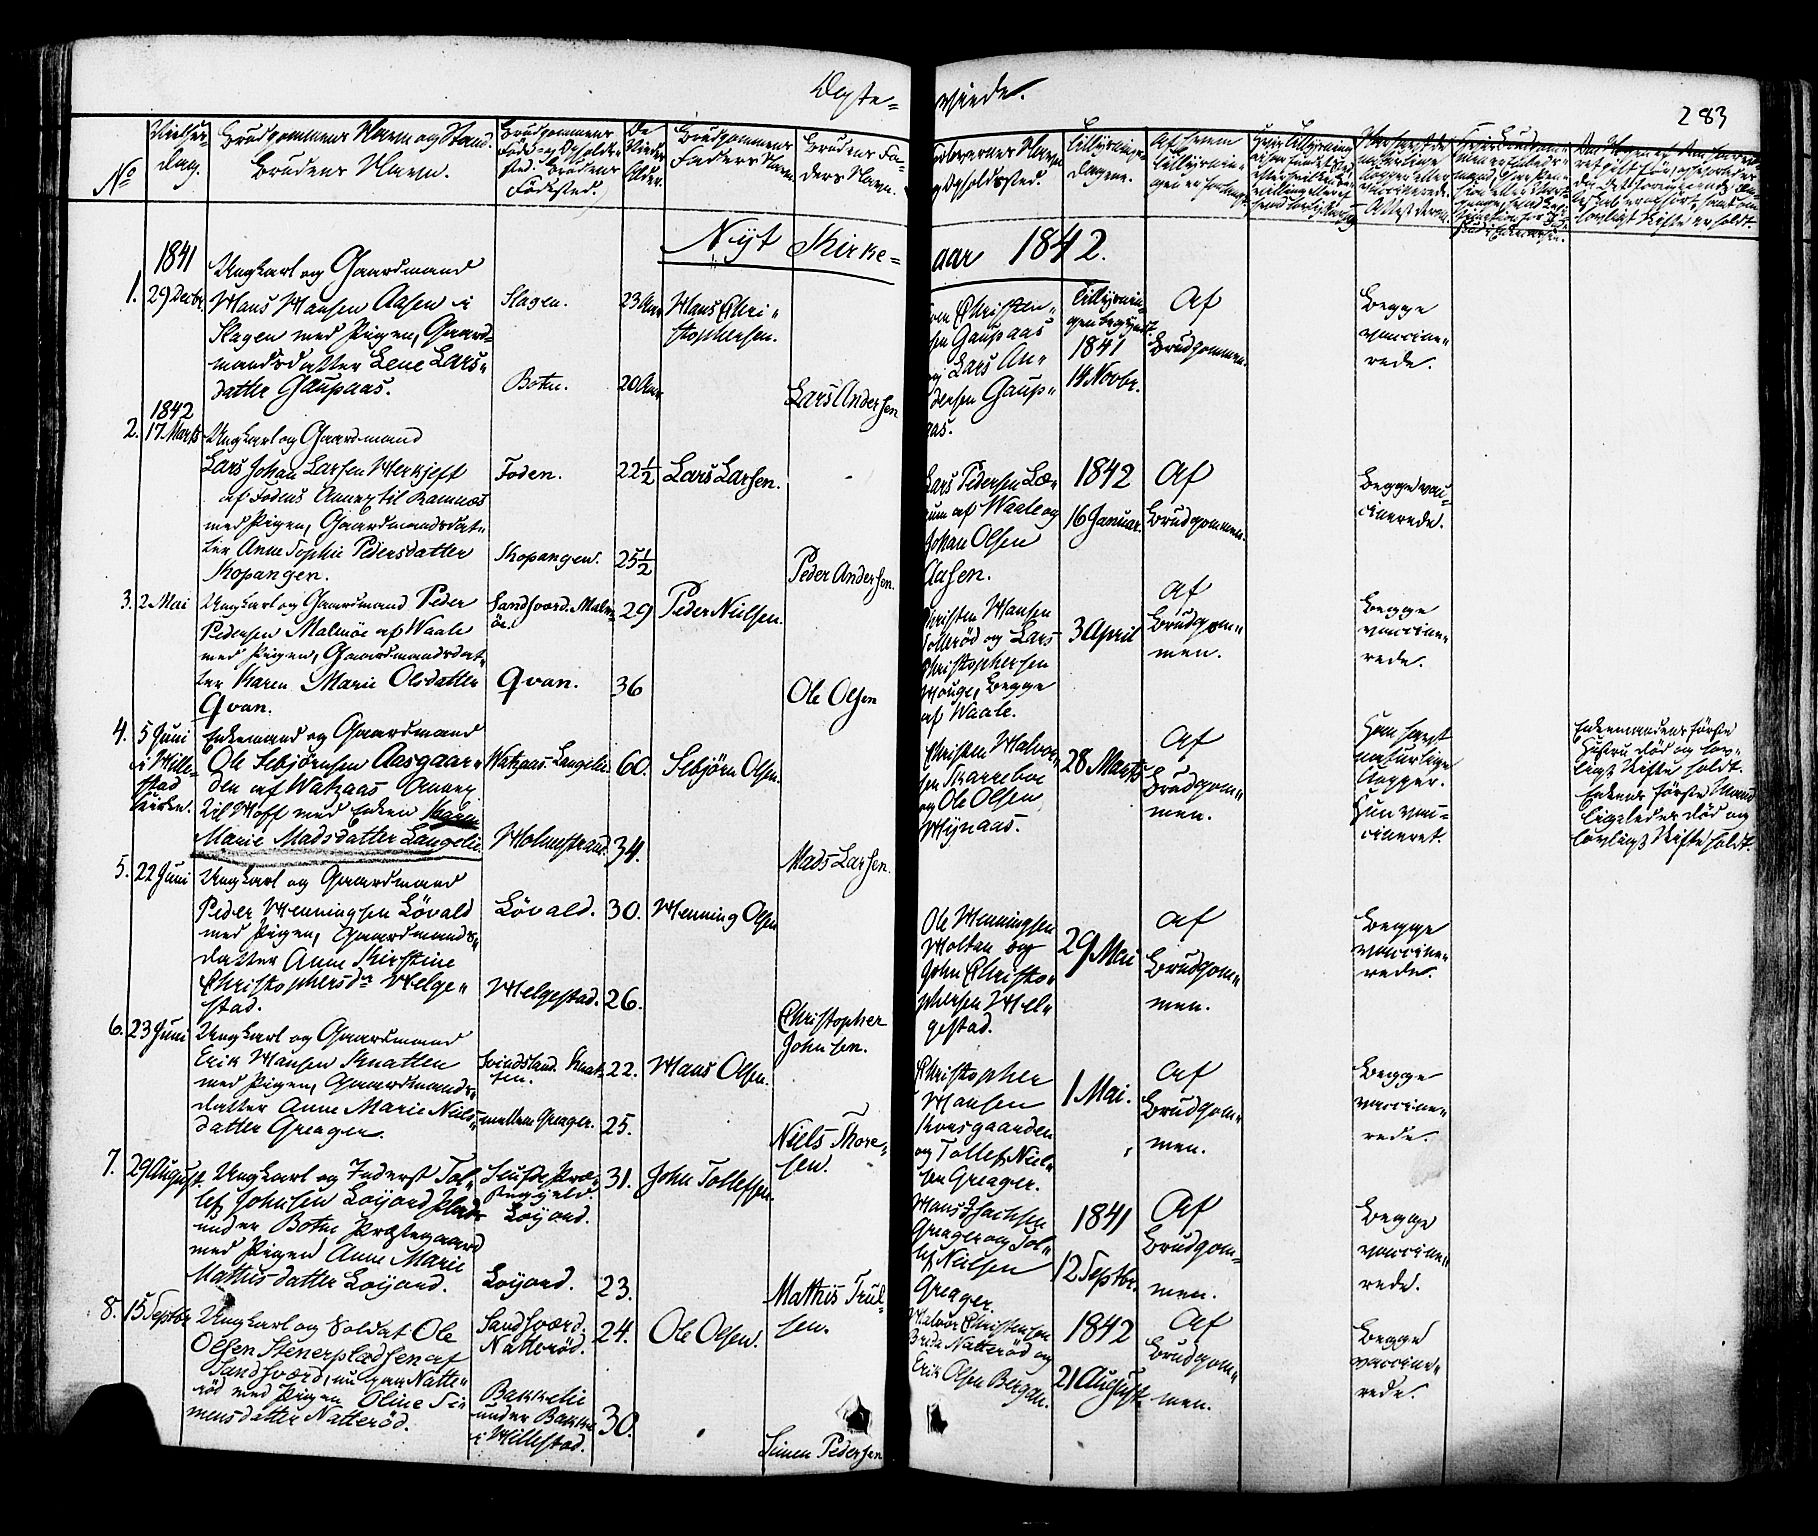 Ægte=
viede.
283
No
Vielses-
dag.
Brudgommens Navn og Stand.
Brudens Navn.
Brudgommens
Føde- og Opholds-
sted. Brudens
Fødested.
De
Viedes
Alder.
Brudgommens
Faders Navn
Brudens Fa-
ders Navn.
Forlovernes Navn
og Opholdssted.
Tillysnings-
dagene.
Af hvem
Tillysnin-
gen er forlangt.
Nyt Kirke=
aar 1842.
1841
1. 29 Decbr.
Ungkarl og Gaardmand
Hans Hansen Aasen i
Slagen med Pigen, Gaard-
mandsdatter Lene Lars-
datter Gaupaas.
Slagen.
Botn.
23 Aar
20 Aar
Hans Chri-
stophersen.
Lars Andersen
Christen-
sen Gaupaas
og Lars An-
dersen Gaup-
aas.
Tillysnin-
gen begyndt
1841
14 Novbr.
Af
Brudgommen.
Begge
vaccine-
rede.
1842
2. 17 Marts
Ungkarl og Gaardmand
Lars Johan Larsen Herkjeft
af Fodens Annex til Ramnæs
med Pigen, Gaardmandsdat-
ter Anne Sophie Pedersdatter
Skopangen.
Foden.
Skopangen.
22½
25½
Lars Larsen.
Peder Andersen.
Lars Pedersen Læ-
rum af Waale og
Johan Olsen
Aasen.
1842
16 Januar.
Af
Brudgommen.
Begge vac-
cinerede.
3. 2 Mai
Ungkarl og Gaardmand Peder
Pedersen Malmöe af Waale
med Pigen, Gaardmandsdat-
ter Karen Marie Olsdatter
Qvan.
Sandsværd. Malm-
öe.
Qvan.
29
36
Peder Nielsen.
Ole Olsen
Christen Hansen
Tollerød og Lars
Christophersen
Houge, Begge
af Waale.
3 April
Af
Brudgom-
men.
Begge
vaccine-
rede.
4. 5 Juni
i Hille-
stad
Kirke.
Enkemand og Gaardmand
Ole Sebjørnsen Aasgaar-
den af Watzaas Annex
til Hoff med Enken Karen
Marie Madsdatter Langelie.
Watzaas. Langelie.
Holmestrand.
60.
34.
Sebjørn Olsen.
Mads Larsen.
Christen Halvor-
sen Skarreboe
og Ole Olsen
Hynaas.
28 Marts
Af
Brudgom-
men.
Han havt
naturlige
Kopper.
Hun vac-
cineret.
Enkemandens første
Hustru død og lov-
ligt Skifte holdt.
Enkens første Mand
ligeledes død og
lovligt Skifte holdt.
5. 22 Juni
Ungkarl og Gaardmand
Peder Henningsen Løvald
med Pigen, Gaardmands-
datter Anne Kirstine
Christophersdr Helge-
stad.
Løvald.
Helgestad.
30.
26.
Henning Olsen
Christopher
Johnsen.
Ole Henningsen
Holtan og
John Christo-
phersen Hel-
gestad.
29 Mai
Af
Brudgom-
men.
Begge
vaccine-
rede.
6. 23 Juni
Ungkarl og Gaardmand
Erik Hansen Knatten
med Pigen, Gaardmands-
datter Anne Marie Niels-
datter Greager.
Svindsland. Knat-
ten.
mellem Greager.
22.
25.
Hans Olsen.
Niels Thore-
sen.
Christopher
Hansen
Korsgaarden
og Tollef Niel-
sen Greager.
1 Mai.
Af
Brudgom-
men.
Begge
vaccine-
rede.
7. 29 August.
Ungkarl og Inderst Tol-
lef Johnsen Løijord Plads
under Botne Præstegaard
med Pigen Anne Marie
Mathisdatter Løijord.
Præ-
stegjeld.
Løijord.
Løijord.
31.
23.
John Tollefsen.
Mathis Trul-
sen.
Hans Isachsen
Greager og Tol-
lef Nielsen
Greager.
1841
12 Septbr.
Af
Brudgom-
men.
Begge
vaccine-
rede.
8. 15 Septbr
Ungkarl og Soldat Ole
Olsen Stenerpladsen af
Sandsværd, nu paa Natte-
rød med Pigen Oline Si-
mensdatter Natterød.
Sandsværd.
Natterød.
Bakkelie
under Bakke
i Hillestad.
24.
30.
Ole Olsen.
Simen Pedersen
Halvor Christensen
Natterød og
Erik Olsen Bergan.
1842
21 August.
Af
Brudgom-
men.
Begge
vaccine-
rede.